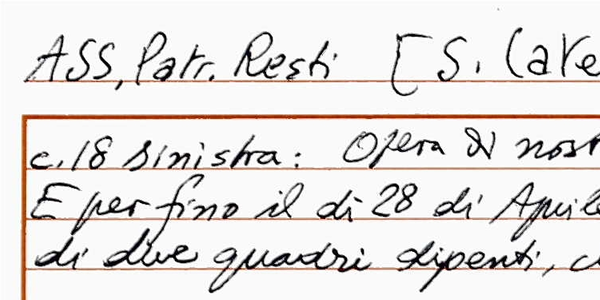 ASS, Patr. Resti [S. Cate
c. 18 sinistra: Opera di nost
E per fino il di 28 di Aprile
di due quadri dipenti, c